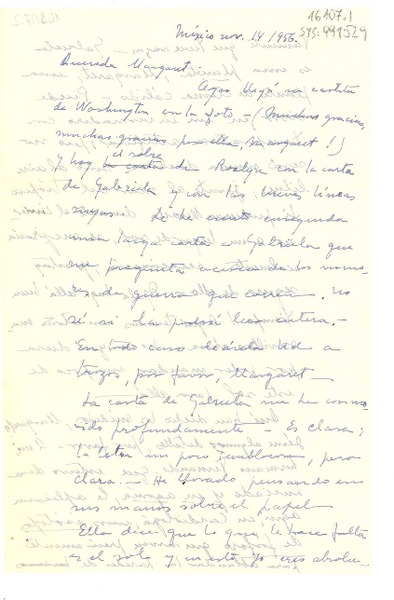 16107.1
SYS: 991529
México nov. 14/956.
Querida Margaret:
Ayer llegó su cartita
de Washington con la foto — (Muchas gracias,
muchas gracias por ella Margaret!)
y hoy el sobre de Roslyn con la carta
de Gabriela y con las breves líneas
suyas. Le he escrito enseguida
una larga carta a Gabriela que
me pregunta acerca de los rumo-
res de guerra que corren. No
sé si la podrá leer entera.—
En todo caso léasela Ud a
trozos, por favor, Margaret—
La carta de Gabriela me ha conmo-
vido profundamente — Es clara;
la letra un poco temblorosa, pero
clara.— He llorado pensando en
sus manos sobre el papel
Ella dice que lo que le hace falta
es el sol y en esto yo creo absolu-